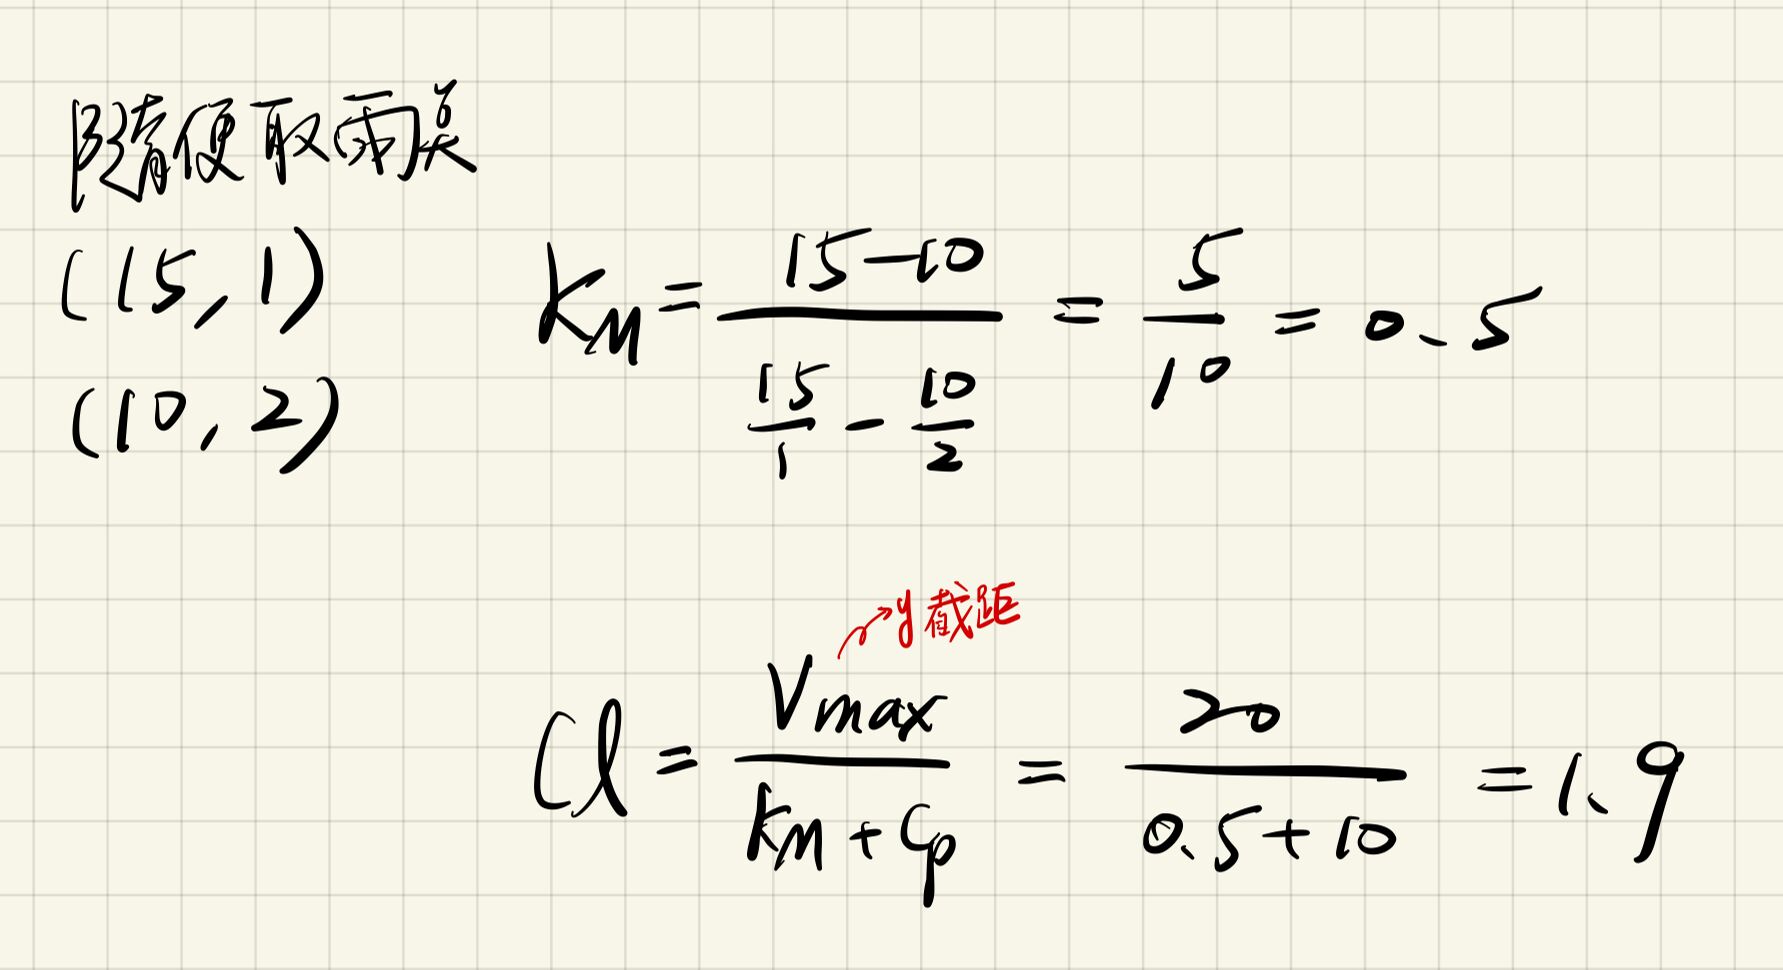 隨便取兩点
(15,1)
(10,2)
KM = (15-10) / (15/1 - 10/2) = 5/10 = 0.5
y截距
Cl = Vmax / (KM + Cp) = 20 / (0.5+10) = 1.9